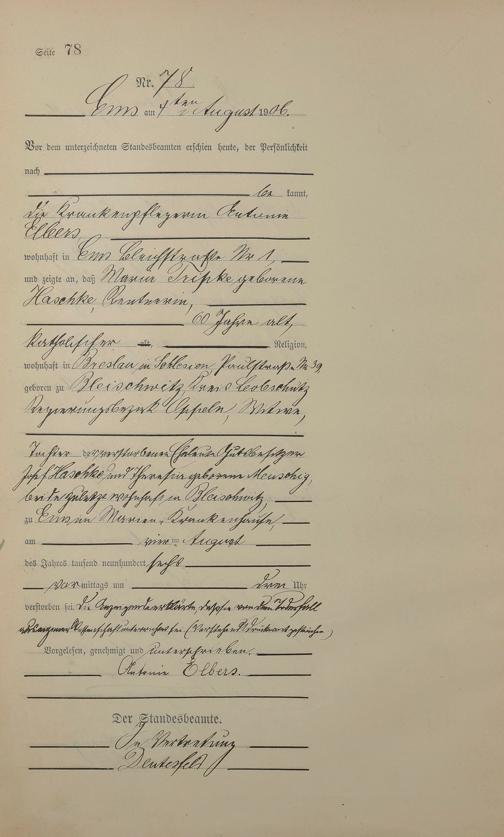 Seite 78
Nr. 78
Ems am 4ten August 1906.
Vor dem unterzeichneten Standesbeamten erschien heute, der Persönlichkeit
nach
be kannt,
die Krankenpflegerin Antonie
Elbers
wohnhaft in Ems Bleichstraße Nr 1,
und zeigte an, daß Maria geborene
Haschke, Rentnerin,
60 Jahre alt,
katholischer Religion,
wohnhaft in Breslau in Schlesien, Paulstraße Nr 39
geboren zu Bleischwitz, Kreis Leobschütz
Regierungsbezirk Oppeln, Witwe,
Tochter der verstorbenen Eheleute Gutsbesitzer
Josef Haschke und Theresia geborene
beide zuletzt wohnhaft in Bleischwitz,
zu Ems im Marien-Krankenhause,
am vier August
des Jahres tausend neunhundert sechs
vor mittags um drei Uhr
verstorben sei. Die Anzeigende erklärte, daß sie von dem Todesfall
aus eigener Wissenschaft unterrichtet sei. (Vorstehend Druckwort gestrichen)
Vorgelesen, genehmigt und unterschrieben.
Antonie Elbers.
Der Standesbeamte.
In Vertretung